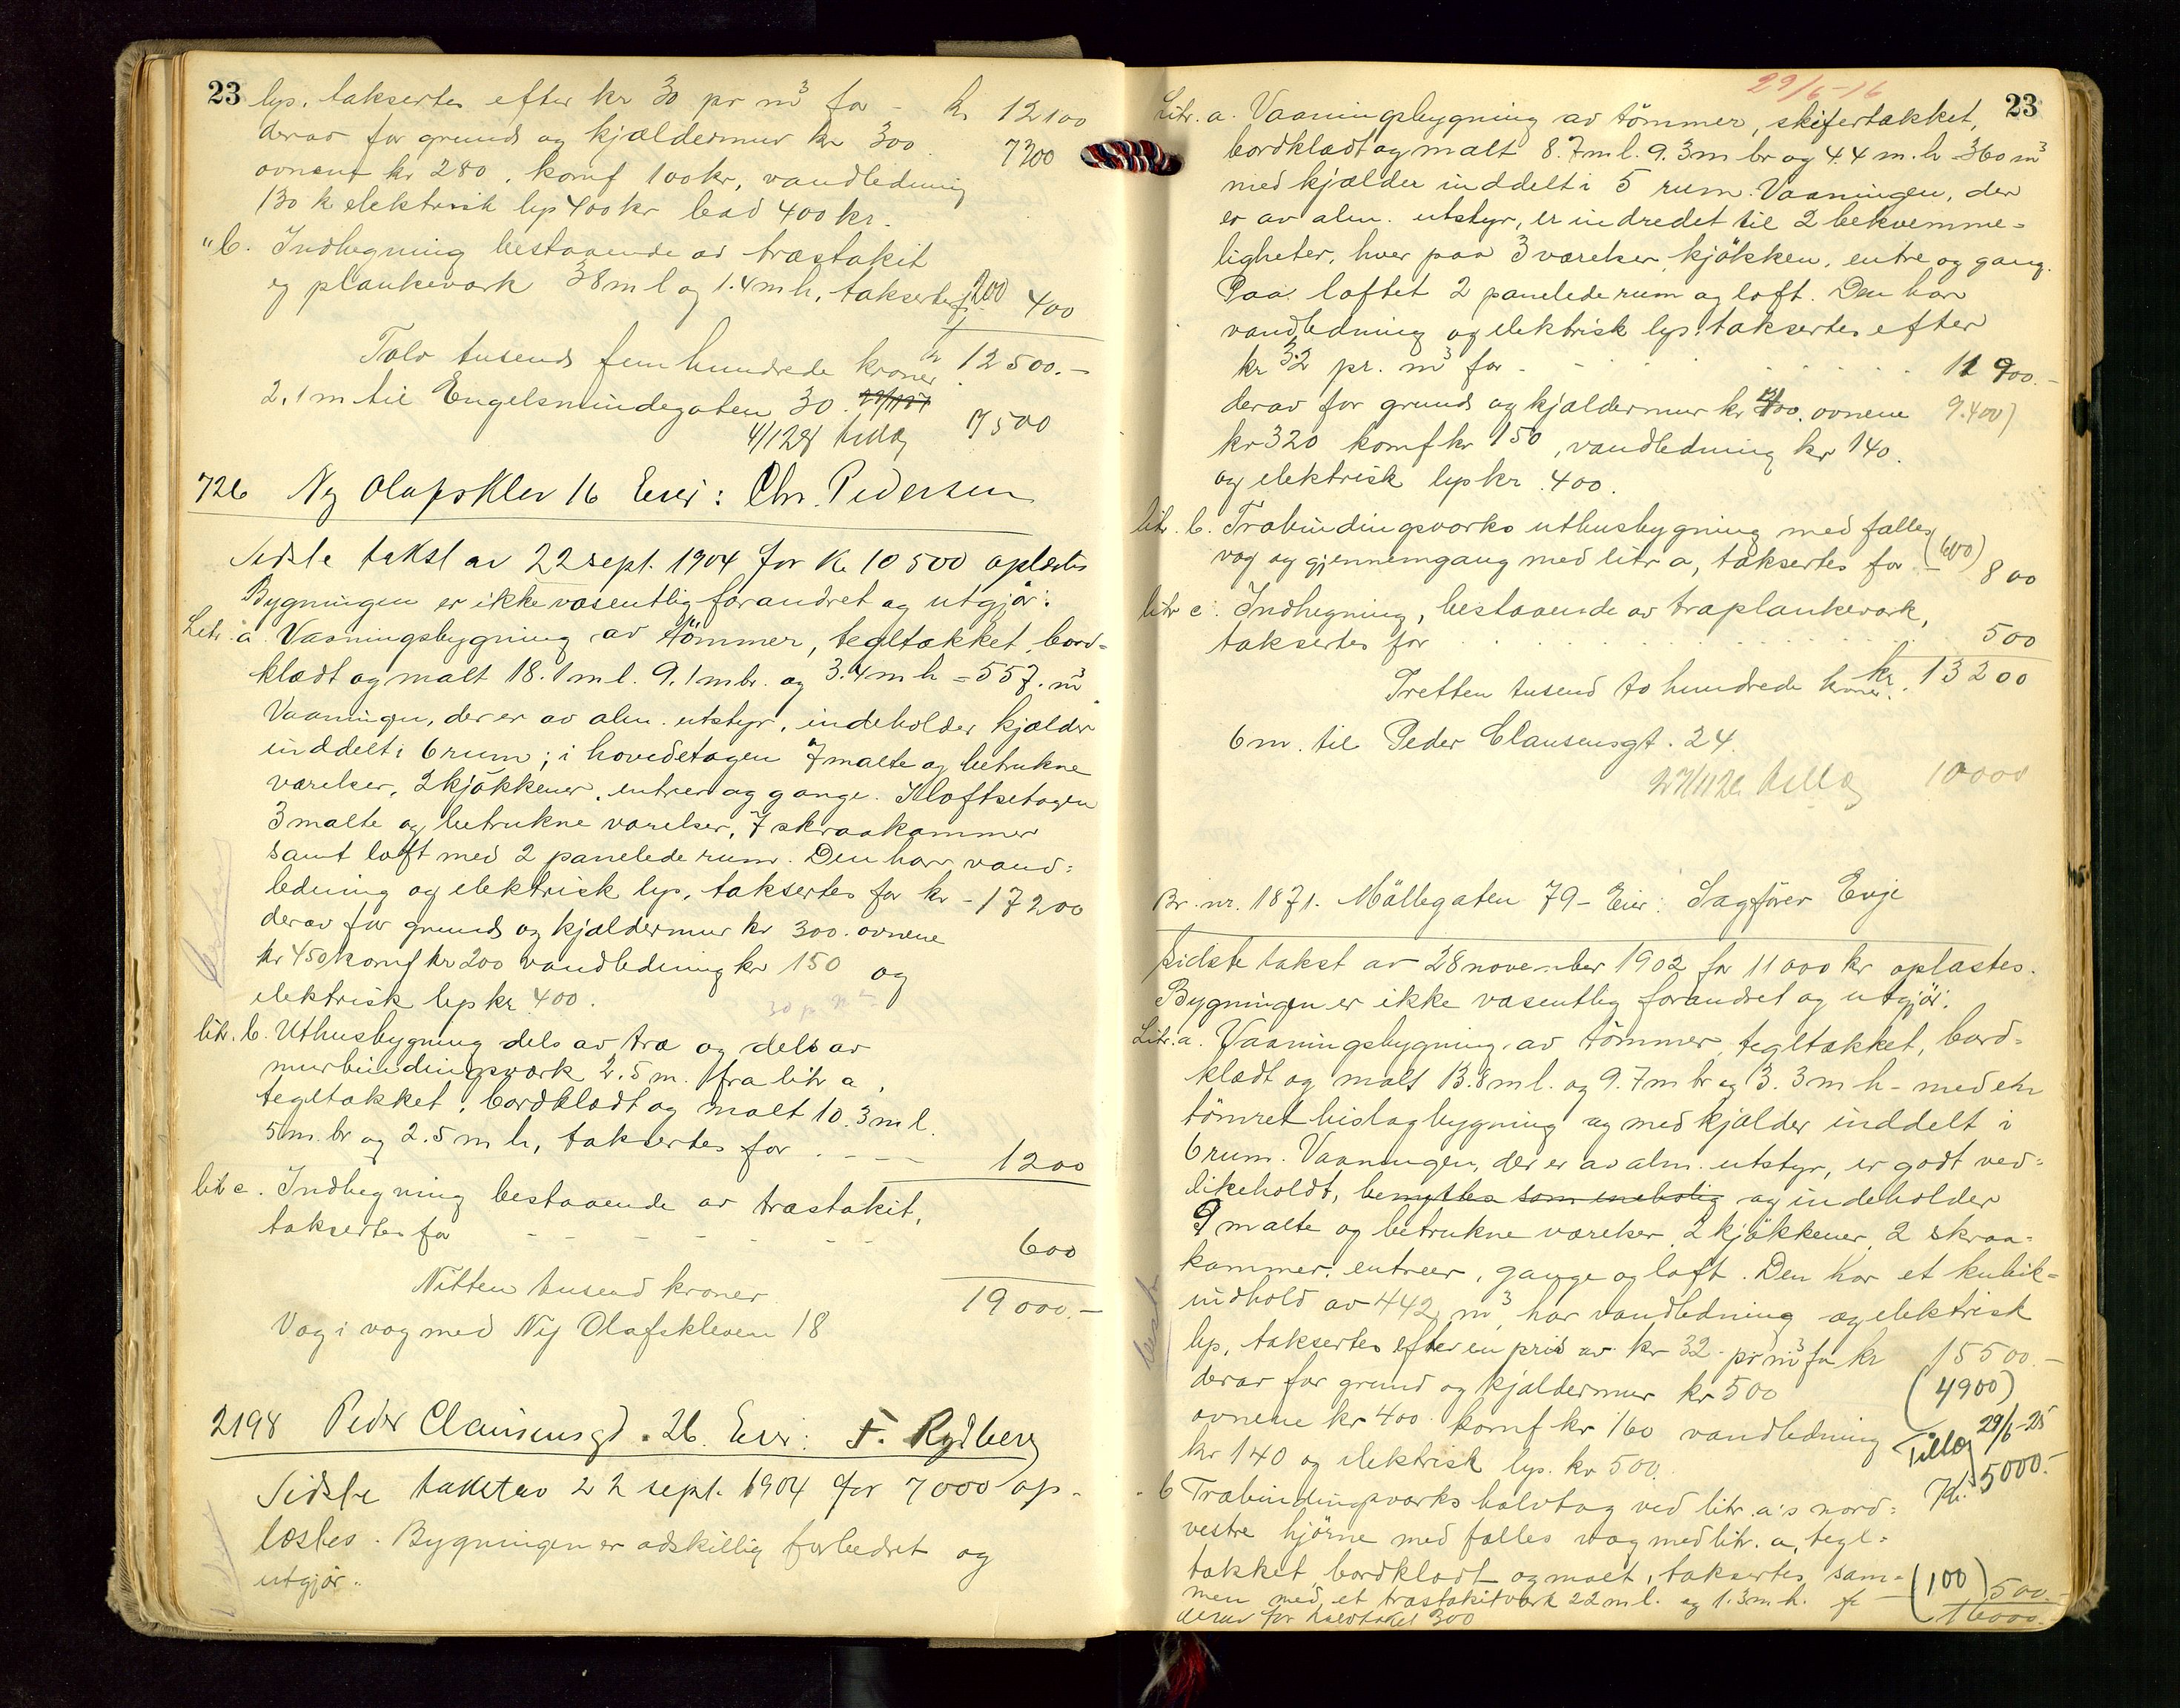 23 lys, taksertes efter kr 30 pr m³ for - kr 12100
derav for grund og kjældermur kr 300. 7300
ovnene kr 280, komf 100 kr, vandledning
130 kr elektrisk lys 400 kr bad 400 kr.
" b. Indhegning bestaaende av træstakit
og plankeværk 38 m l og 1.4 m h, taksertes for 200 400
Tolv tusend fem hundrede kroner kr 12500.-
2.1 m til Engelsmindegaten 30.
4/12 tillæg 7500
726 Ny Olafsklev 16 Eier: Chr. Pedersen
Sidste takst av 22 sept. 1904 for kr 10500 oplæstes
Bygningen er ikke væsentlig forandret og utgjør:
Litr. a. Vaaningsbygning av tömmer, tegltækket, bord-
klædt og malt 18.1 m l. 9.1 m br. og 3.4 m h = 557. m³
Vaaningen, der er av alm. utstyr, indeholder kjælder
inddelt i 6 rum; i hovedetagen 7 malte og betrukne
værelser, 2 kjökkener, entreer og gange. I loftsetagen
3 malte og betrukne værelser, 7 skraakammer
samt loft med 2 panelede rum. Den har vand=
ledning og elektrisk lys, taksertes for kr - 17200
derav for grund og kjældermur kr 300. ovnene
kr 450 komf kr 200 vandledning kr 150 og
elektrisk lys kr 400.
litr. b. Uthusbygning dels av træ og dels av
murbindingsværk 2.5 m. fra litr a,
tegltækket, bordklædt og malt 10.3 m l.
5 m. br og 2.5 m h, taksertes for . - - - 1200
litr c. Indhegning bestaaende av træstakit,
taksertes for - - - - - - - 600
Nitten tusend kroner 19000.-
Væg i væg med Ny Olafskleven 18
2198 Peder Clausensgt. 26. Eier: F. Rydberg
Sidste takst av 22 sept. 1904 for 7000 op-
læstes. Bygningen er adskillig forbedret og
utgjør:
29/6-16
23
Litr. a. Vaaningsbygning av tömmer, skifertækket,
bordklædt og malt 8.7 m l. 9.3 m br og 4.4 m. h = 360 m³
med kjælder inddelt i 5 rum. Vaaningen, der
er av alm. utstyr, er indredet til 2 bekvemme=
ligheter, hver paa 3 værelser, kjökken, entre og gang.
Paa loftet 2 panelede rum og loft. Den har
vandledning og elektrisk lys, taksertes efter
kr 32 pr. m³ for - - . . . . . . 11900.-
derav for grund og kjældermur kr 400. ovnene 9.400)
kr 320 komf kr 150, vandledning kr 140.
og elektrisk lys kr. 400.
litr. b. Træbindingsværks uthusbygning med fælles
væg og gjennemgang med litr a, taksertes for - (600) 800
litr c. Indhegning, bestaaende av træplankeværk,
taksertes for . . . . . . . . . 500
Tretten tusend to hundrede kroner. kr. 13200
6 m. til Peder Clausensgt. 24.
tillæg 10000
Br. nr. 1871. Möllegaten 79 - Eier: Sagförer Evje
Sidste takst av 28 november 1902 for 11000 kr oplæstes.
Bygningen er ikke væsentlig forandret og utgjör:
Litr. a. Vaaningsbygning av tömmer, tegltækket, bord-
klædt og malt 13.8 m l. og 9.7 m br og 3.3 m h - med en
tömret bislagbygning og med kjælder inddelt i
6 rum. Vaaningen, der er av alm. utstyr, er godt ved=
likeholdt, benyttes som enebolig og indeholder
9 malte og betrukne værelser, 2 kjökkener, 2 skraa=
kammer, entreer, gange og loft. Den har et kubik=
indhold av 442 m³, har vandledning og elektrisk
lys, taksertes efter en pris av kr 32 pr m³ for kr 15500.-
derav for grund og kjældermur kr 500 (4900)
ovnene kr 400. komf kr 160 vandledning Tillæg 29/6-25
kr 140 og elektrisk lys. kr 500. Kr. 5000.-
- b Træbindingsværks halvtag ved litr. a's nord=
vestre hjörne med fælles væg med litr. a, tegl=
tækket, bordklædt og malt, taksertes sam=
men med et træstakitværk 22 m l. og 1.3 m h. for - (100) 500.-
derav for halvtaket 300 16000.